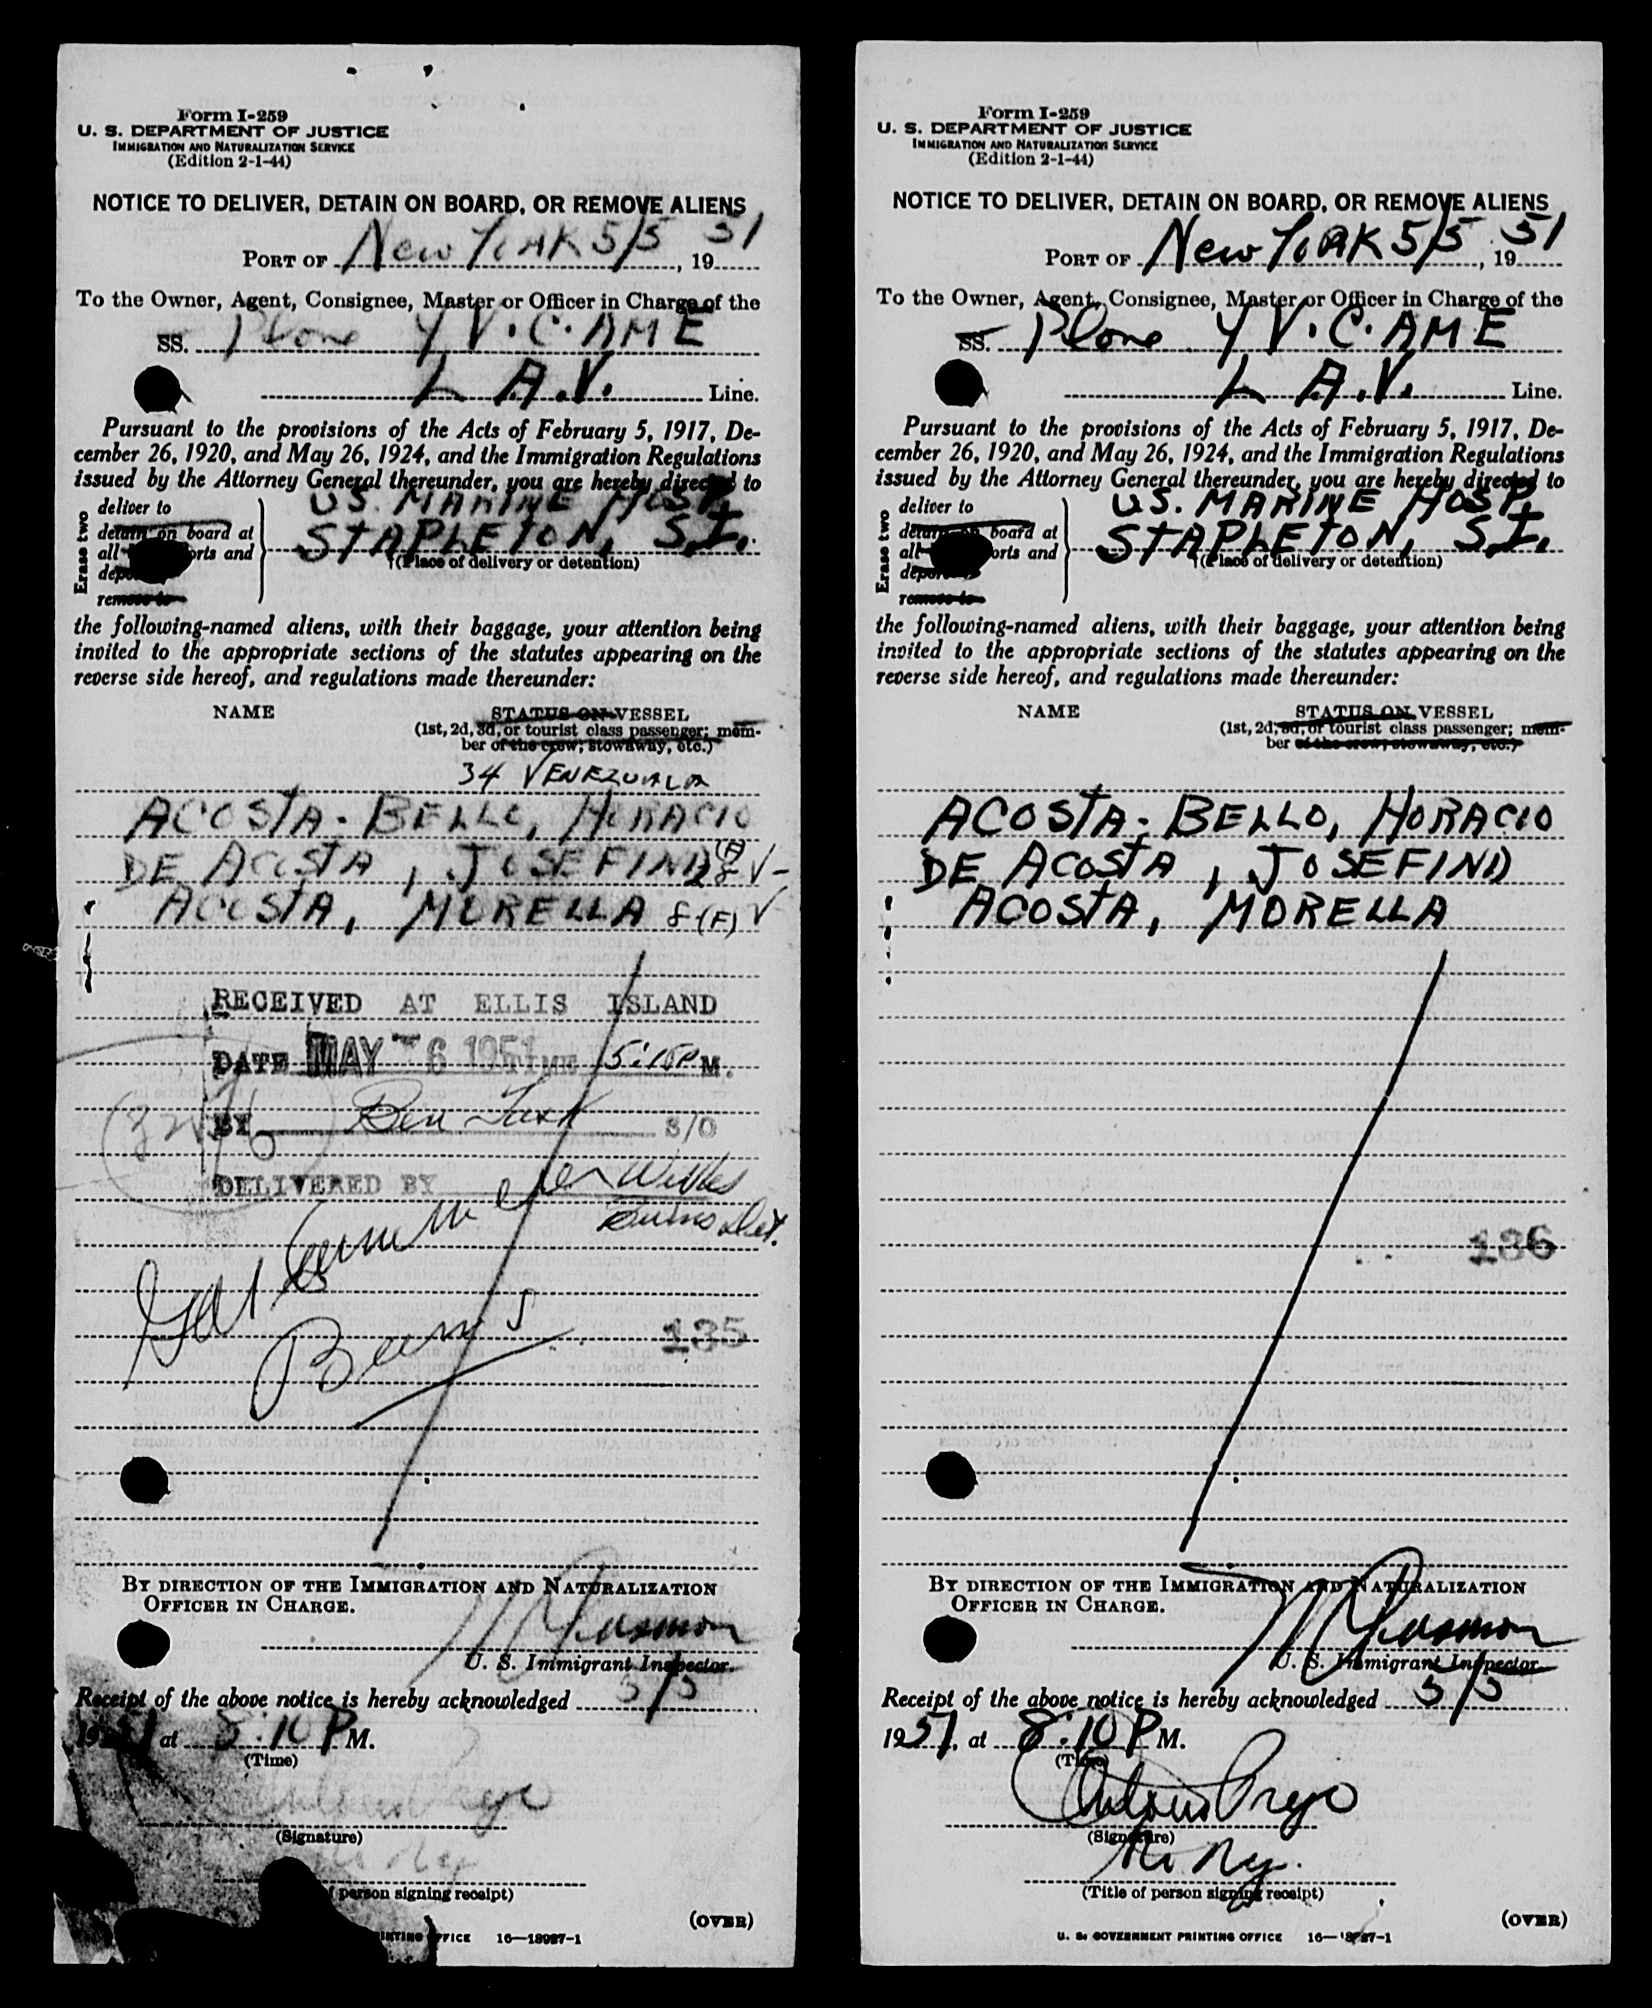 Form I-259
U. S. DEPARTMENT OF JUSTICE
IMMIGRATION AND NATURALIZATION SERVICE
(Edition 2-1-44)
NOTICE TO DELIVER, DETAIN ON BOARD, OR REMOVE ALIENS
PORT OF New YoRK 5/5, 1951
To the Owner, Agent, Consignee, Master or Officer in Charge of the
SS. Plane YV.C.AME
L A.V. Line.
Pursuant to the provisions of the Acts of February 5, 1917, De-
cember 26, 1920, and May 26, 1924, and the Immigration Regulations
issued by the Attorney General thereunder, you are hereby directed to
Erase two
deliver to
detain on board at
all orts and
remove to
U.S. MARINE HOSP,
STAPLETON, S.I.
(Place of delivery or detention)
the following-named aliens, with their baggage, your attention being
invited to the appropriate sections of the statutes appearing on the
reverse side hereof, and regulations made thereunder:
NAME
STATUS ON VESSEL
(1st, 2d, 3d, or tourist class passenger; mem-
ber of the crew; stowaway, etc.)
34 VENEZUALA
ACOSTA-BELLO, HORACIO
DE ACOSTA, JOSEFINA 28 V-
ACOSTA, MORELLA 8 (F) V
RECEIVED AT ELLIS ISLAND
DATE MAY -6 1951 TIME 5:15P M.
BY Ben S/O
DELIVERED BY
135
BY DIRECTION OF THE IMMIGRATION AND NATURALIZATION
OFFICER IN CHARGE.
U. S. Immigrant Inspector.
Receipt of the above notice is hereby acknowledged 5/5
1951 at 8:10 P M.
(Time)
(Signature)
person signing receipt)
(OVER)
PRINTING OFFICE 16—18987-1
Form I-259
U. S. DEPARTMENT OF JUSTICE
IMMIGRATION AND NATURALIZATION SERVICE
(Edition 2-1-44)
NOTICE TO DELIVER, DETAIN ON BOARD, OR REMOVE ALIENS
PORT OF New YoRK 5/5, 1951
To the Owner, Agent, Consignee, Master or Officer in Charge of the
SS. Plane YV.C.AME
L A.V. Line.
Pursuant to the provisions of the Acts of February 5, 1917, De-
cember 26, 1920, and May 26, 1924, and the Immigration Regulations
issued by the Attorney General thereunder, you are hereby directed to
Erase two
deliver to
detain on board at
all orts and
remove to
U.S. MARINE HOSP,
STAPLETON, S.I.
(Place of delivery or detention)
the following-named aliens, with their baggage, your attention being
invited to the appropriate sections of the statutes appearing on the
reverse side hereof, and regulations made thereunder:
NAME
STATUS ON VESSEL
(1st, 2d, 3d, or tourist class passenger; mem-
ber of the crew; stowaway, etc.)
ACOSTA-BELLO, HORACIO
DE ACOSTA, JOSEFINA
ACOSTA, MORELLA
136
BY DIRECTION OF THE IMMIGRATION AND NATURALIZATION
OFFICER IN CHARGE.
U. S. Immigrant Inspector
Receipt of the above notice is hereby acknowledged 5/5
1951, at 8:10 P M.
(Time)
(Signature)
(Title of person signing receipt)
(OVER)
U. S. GOVERNMENT PRINTING OFFICE